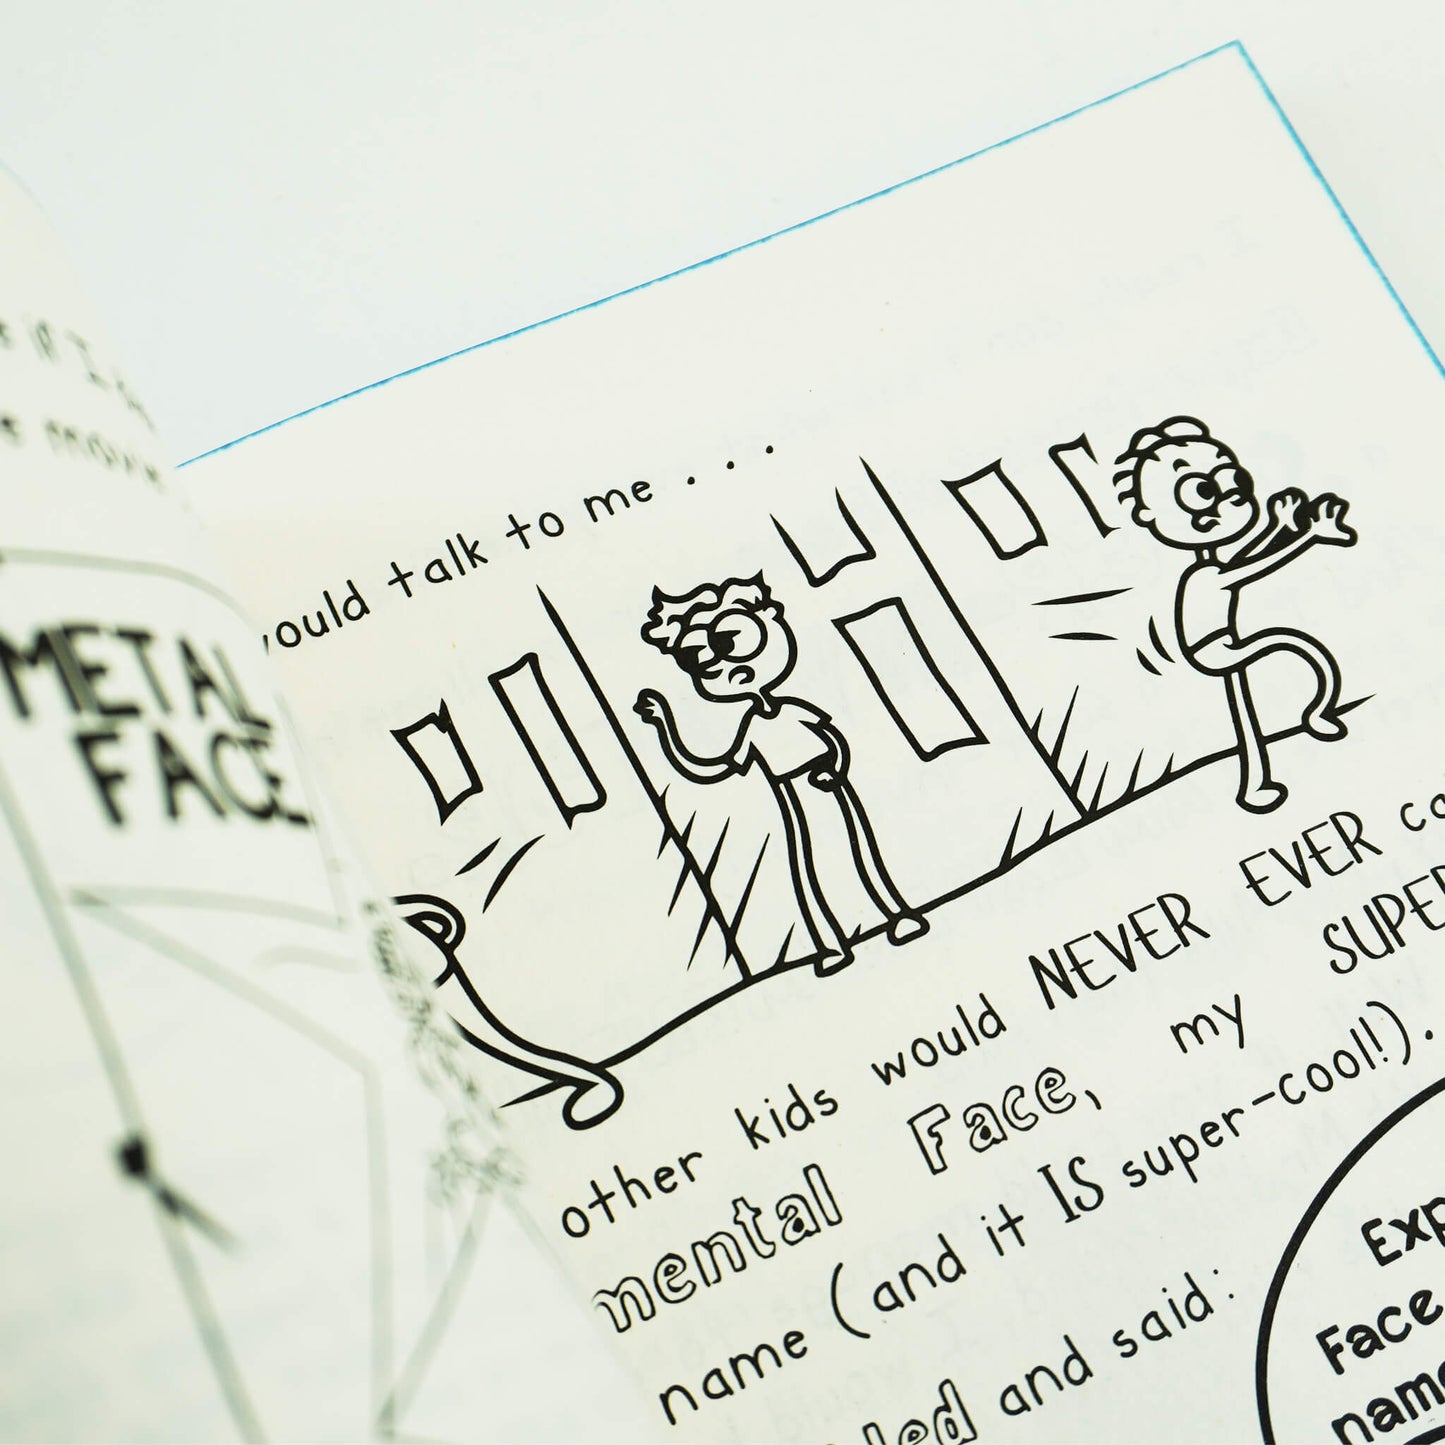 if I
movie
METAL
FACE
would talk to me . . .
other kids would NEVER EVER
mental Face, my SUPER
name (and it IS super-cool!).
and said:
Face
name